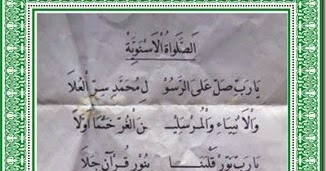 الصَّلَوَاةُ الْأَسْنَوِيَّةُ
يَا رَبِّ صَلِّ عَلَى الرَّسُوْ لِ مُحَمَّدٍ سِرِّ الْعُلَا
وَالْأَنْبِيَاءِ وَالْمُرْسَلِيْـ ـنَ الْغُرِّ خَتْمًا أَوَّلَا
يَا رَبِّ نَوِّرْ قَلْبَنَا بِنُوْرِ قُرْآنٍ جَلَا